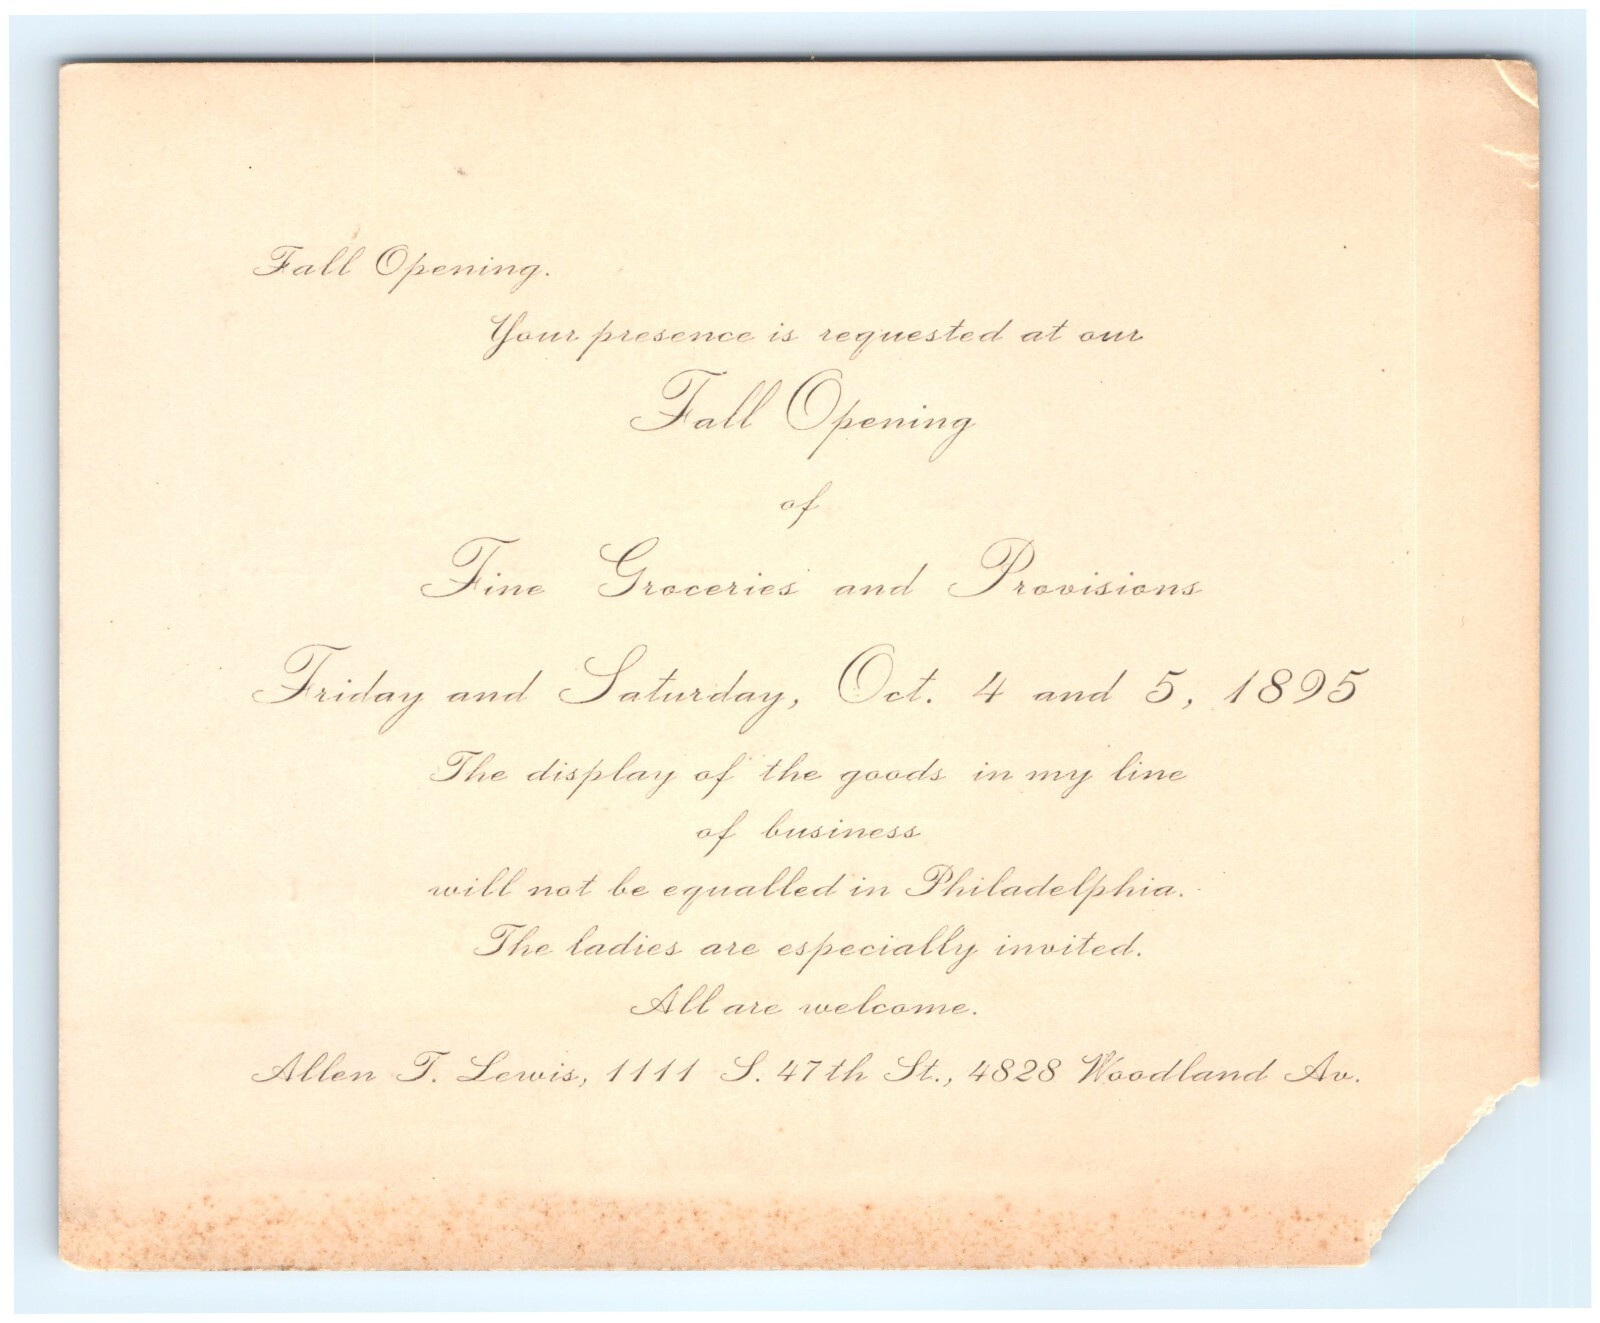 Fall Opening.
Your presence is requested at our
Fall Opening
of
Fine Groceries and Provisions
Friday and Saturday, Oct. 4 and 5, 1895
The display of the goods in my line
of business
will not be equalled in Philadelphia.
The ladies are especially invited.
All are welcome.
Allen T. Lewis, 1111 S. 47th St., 4828 Woodland Av.